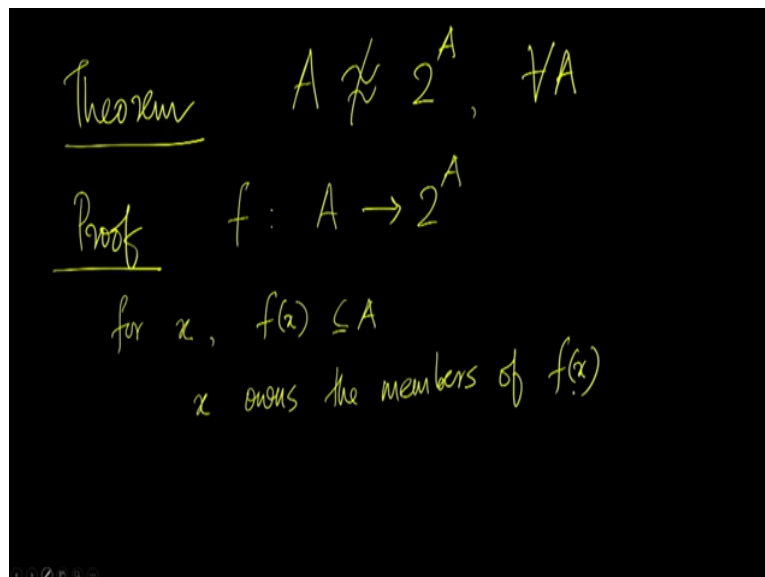 Theorem A ≉ 2^A, ∀A
Proof f : A → 2^A
for x, f(x) ⊆ A
x owns the members of f(x)